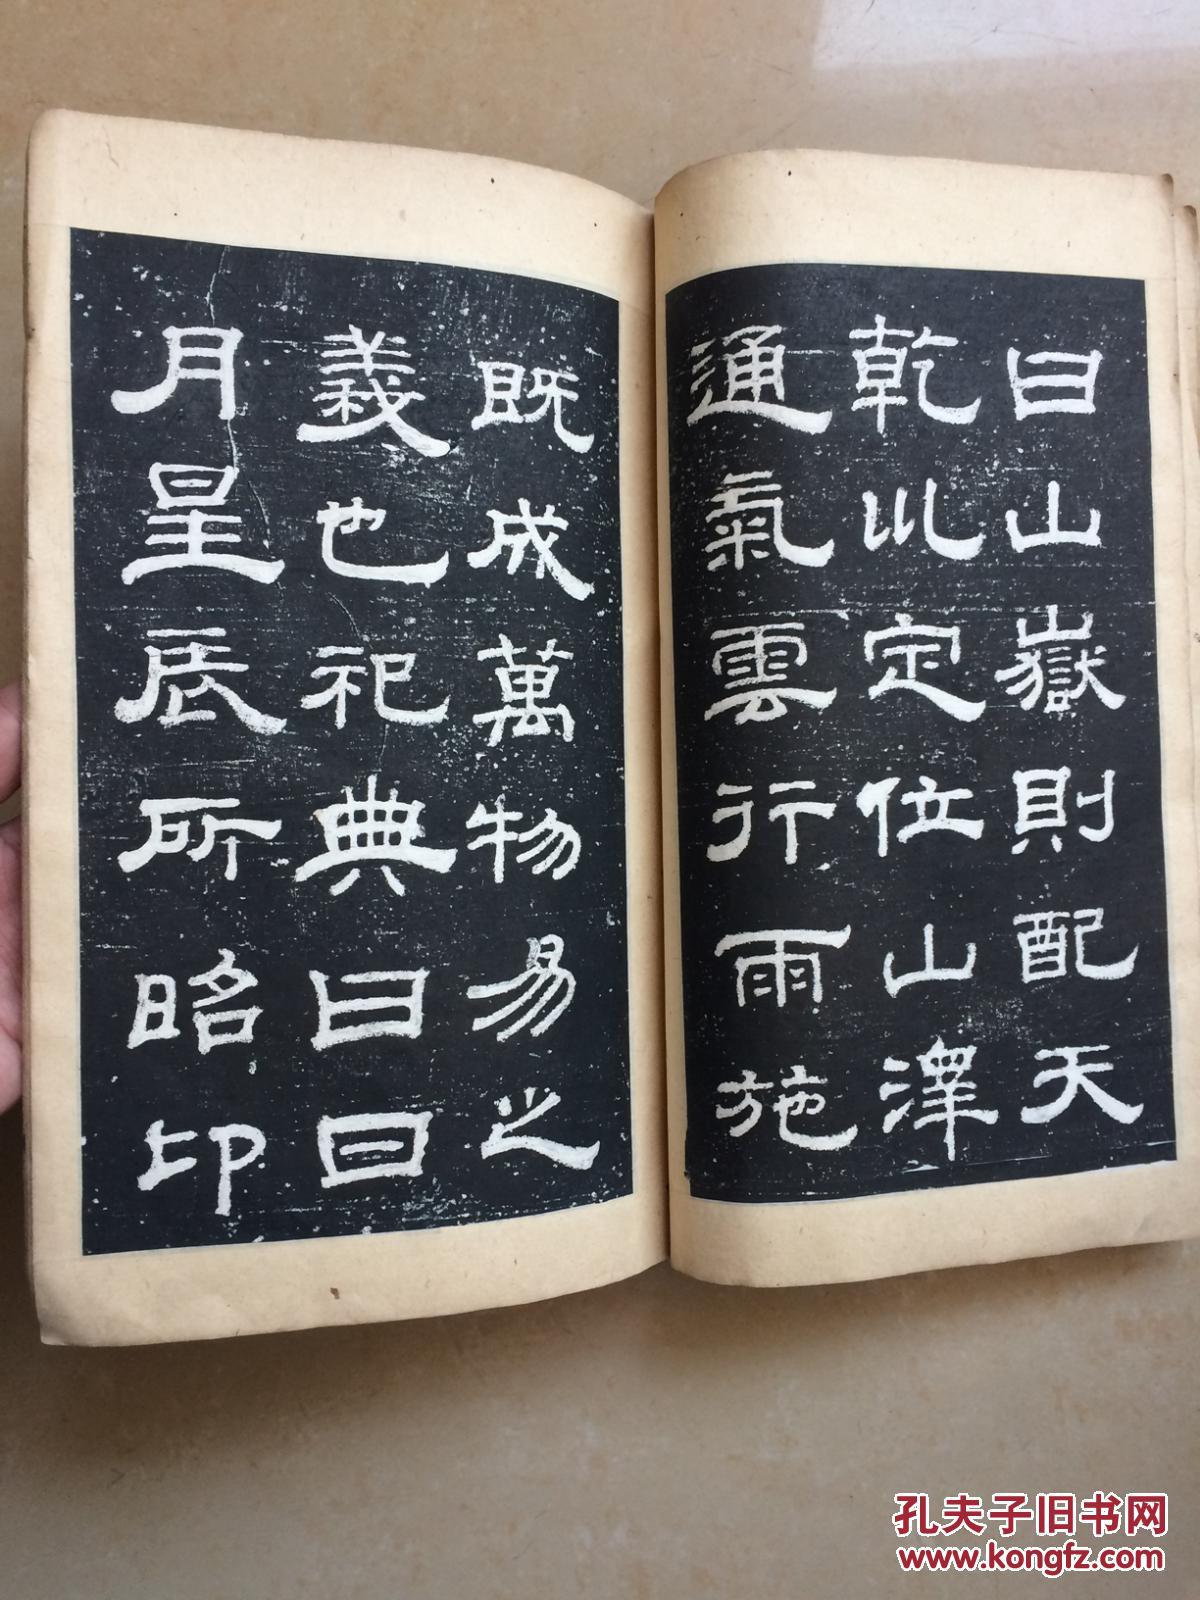 曰山嶽則配天
乾以定位山澤
通氣雲行雨施
既成萬物易之
義也祀典曰日
月星辰所昭卬
孔夫子旧书网
www.kongfz.com